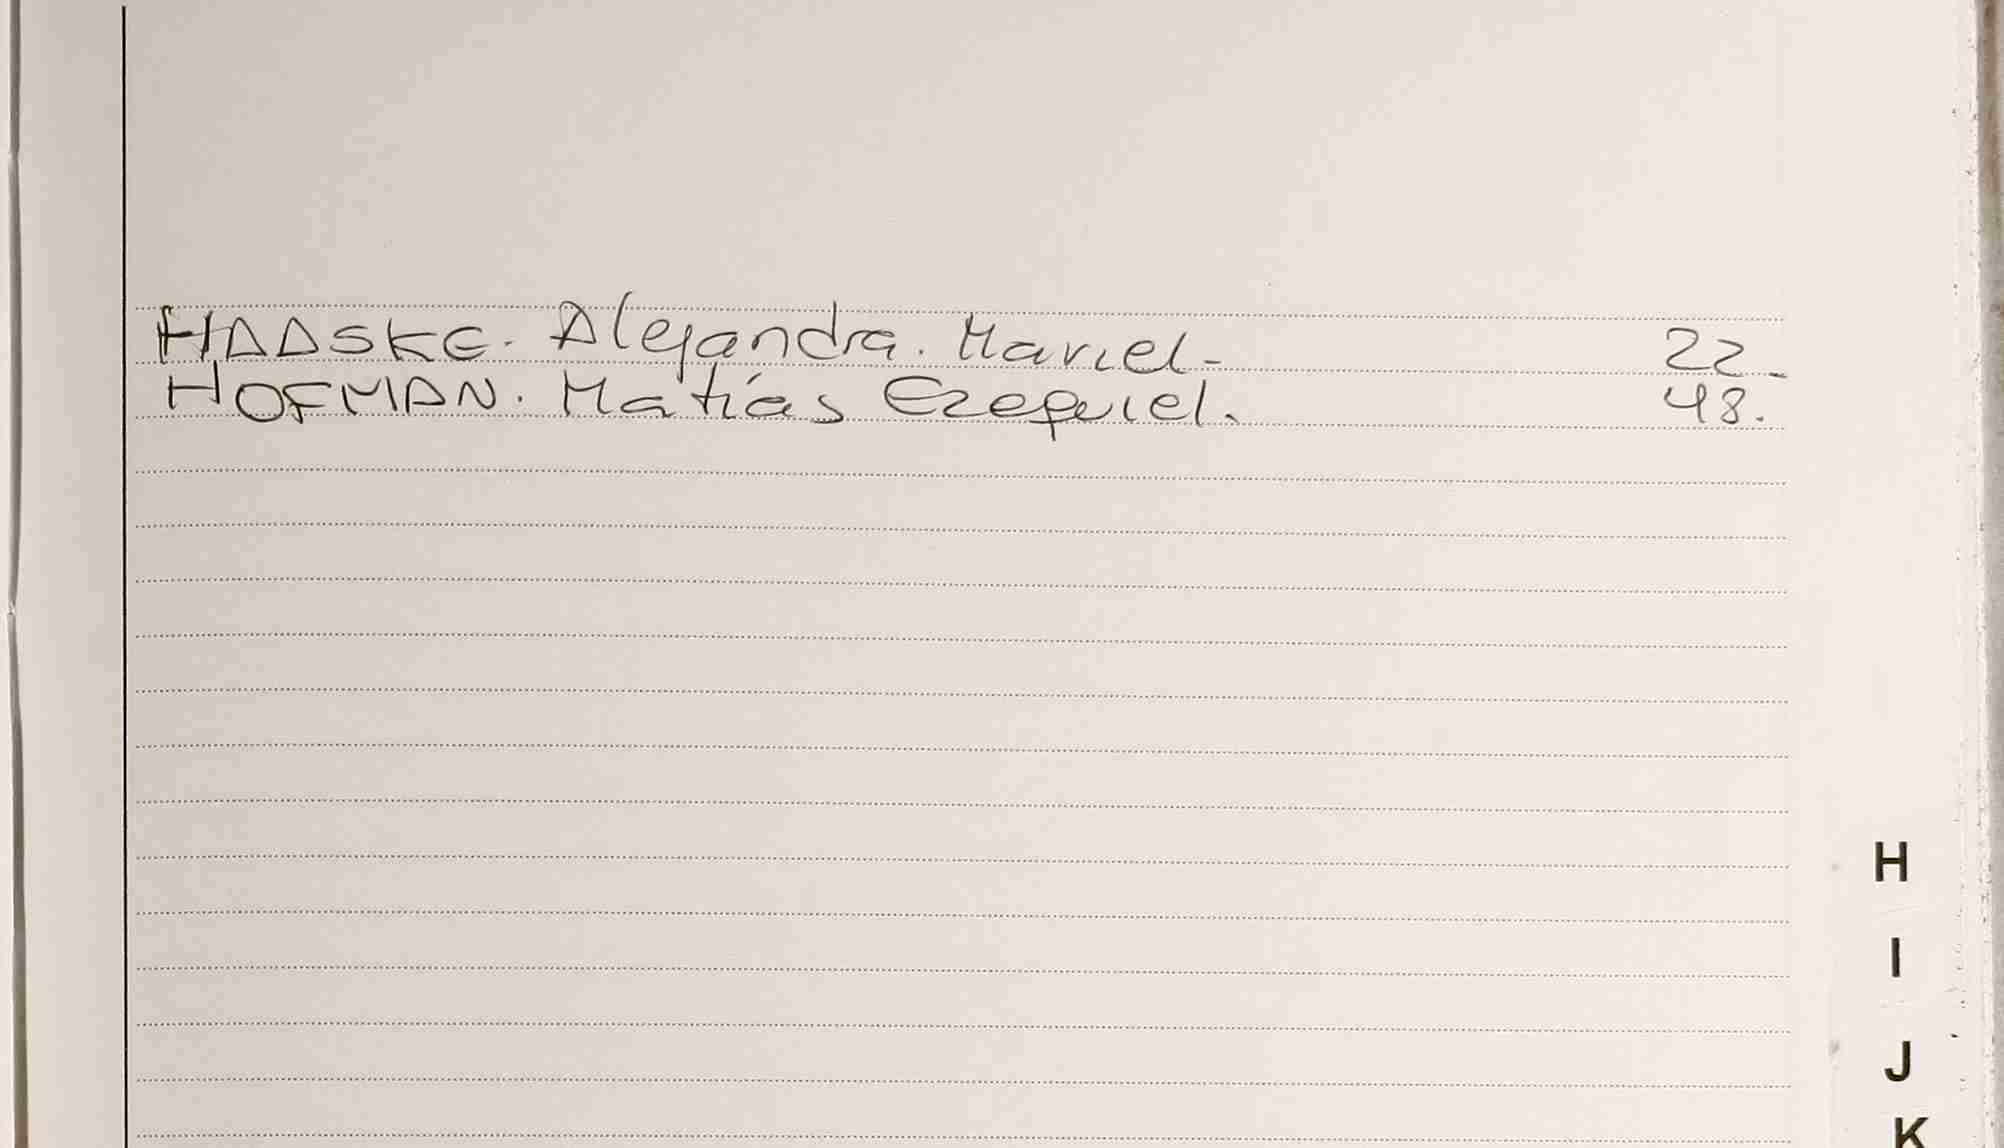 HAASKE. Alejandra. Mariel- 22-
HOFMAN. Matías Ezequiel. 48.
H
I
J
K